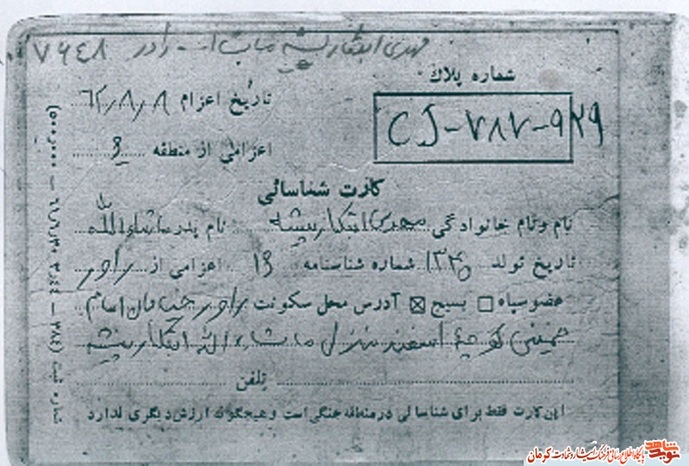 مهدی ابتکار پیشه راور ۷۶۴۸
شماره پلاك
CJ-۷۸۷-۹۲۹
تاریخ اعزام ۶۲/۸/۸
اعزامی از منطقه ۶
کارت شناسائی
نام ونام خانوادگی مهدی ابتکار پیشه نام پدر ماشاءالله
تاریخ تولد ۱۳۴۵ شماره شناسنامه ۱۶ اعزامی از راور
عضو سپاه □ بسیج ☒ آدرس محل سکونت راور خیابان امام
خمینی کوچه اسفند منزل ماشاءالله ابتکار پیشه
تلفن
این کارت فقط برای شناسائی در منطقه جنگی است و هیچگونه ارزش دیگری ندارد
نوید شاهد
پایگاه اطلاع رسانی فرهنگ ایثار و شهادت کرمان